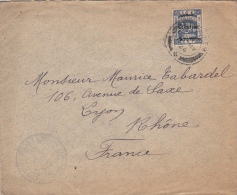 Monsieur Maurice Tabardel
106, Avenue de Saxe
Lyon
Rhône
France